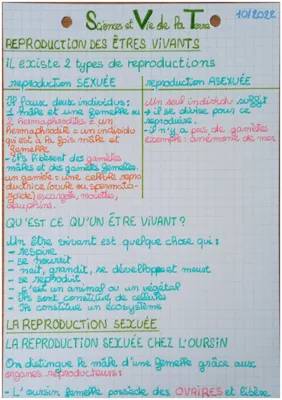 Sciences et Vie de la Terre
10/2022
REPRODUCTION DES ÊTRES VIVANTS
iL existe 2 types de reproductions
reproduction SEXUÉE
il faut deux individus :
1 mâle et une femelle ou
2 hermaphrodites = un
hermaphrodite = un individu
qui est à la fois mâle et
femelle
- ils libèrent des gamètes
mâles et des gamètes femelles.
un gamète = une cellule repro
ductrice (ovule ou spermato-
zoïde) escargots, mouettes,
dauphins.
reproduction ASEXUÉE
Un seul individu suffit
→ il se divise pour se
reproduire.
- il n'y a pas de gamètes
exemple : anémone de mer
QU'EST CE QU'UN ÊTRE VIVANT ?
Un être vivant est quelque chose qui :
- respire
- se nourrit
- naît, grandit, se développe et meurt
- se reproduit
- c'est un animal ou un végétal
- Ils sont constitués de cellules
- Ils constitue un écosystème
LA REPRODUCTION SEXUÉE
LA REPRODUCTION SEXUÉE CHEZ L'OURSIN
On distingue le mâle d'une femelle grâce aux
organes reproducteurs :
- L'oursin femelle possède des OVAIRES et libère